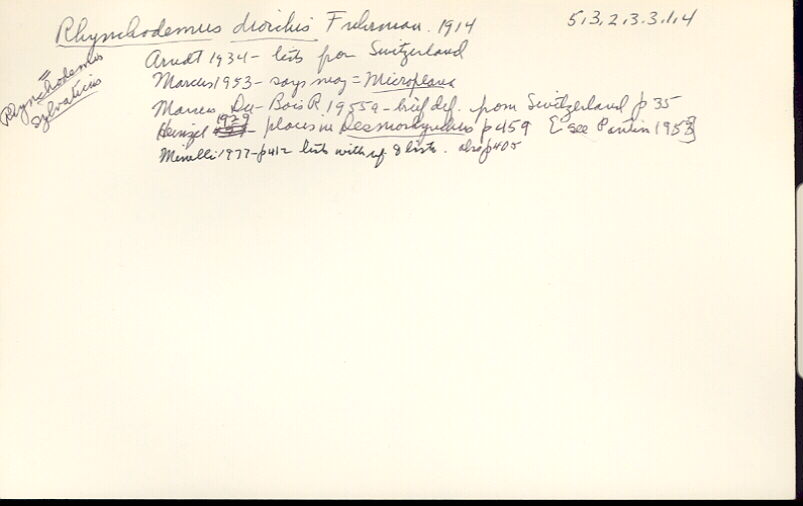 Rhynchodemus diorchis Fuhrman. 1914
5.3.2.3.3.1.4
= Rhynchodemus
sylvaticus
Arndt 1934 - lists from Switzerland
Marcus 1953 - says may = Microplana
Marcus, Du-Bois R 1955a - brief def. from Switzerland p 35
Heinzel 1929 places in Desmorhynchus p 459 [see Pantin 1953]
Minelli 1977 - p 412 lists with of lists. also p 405